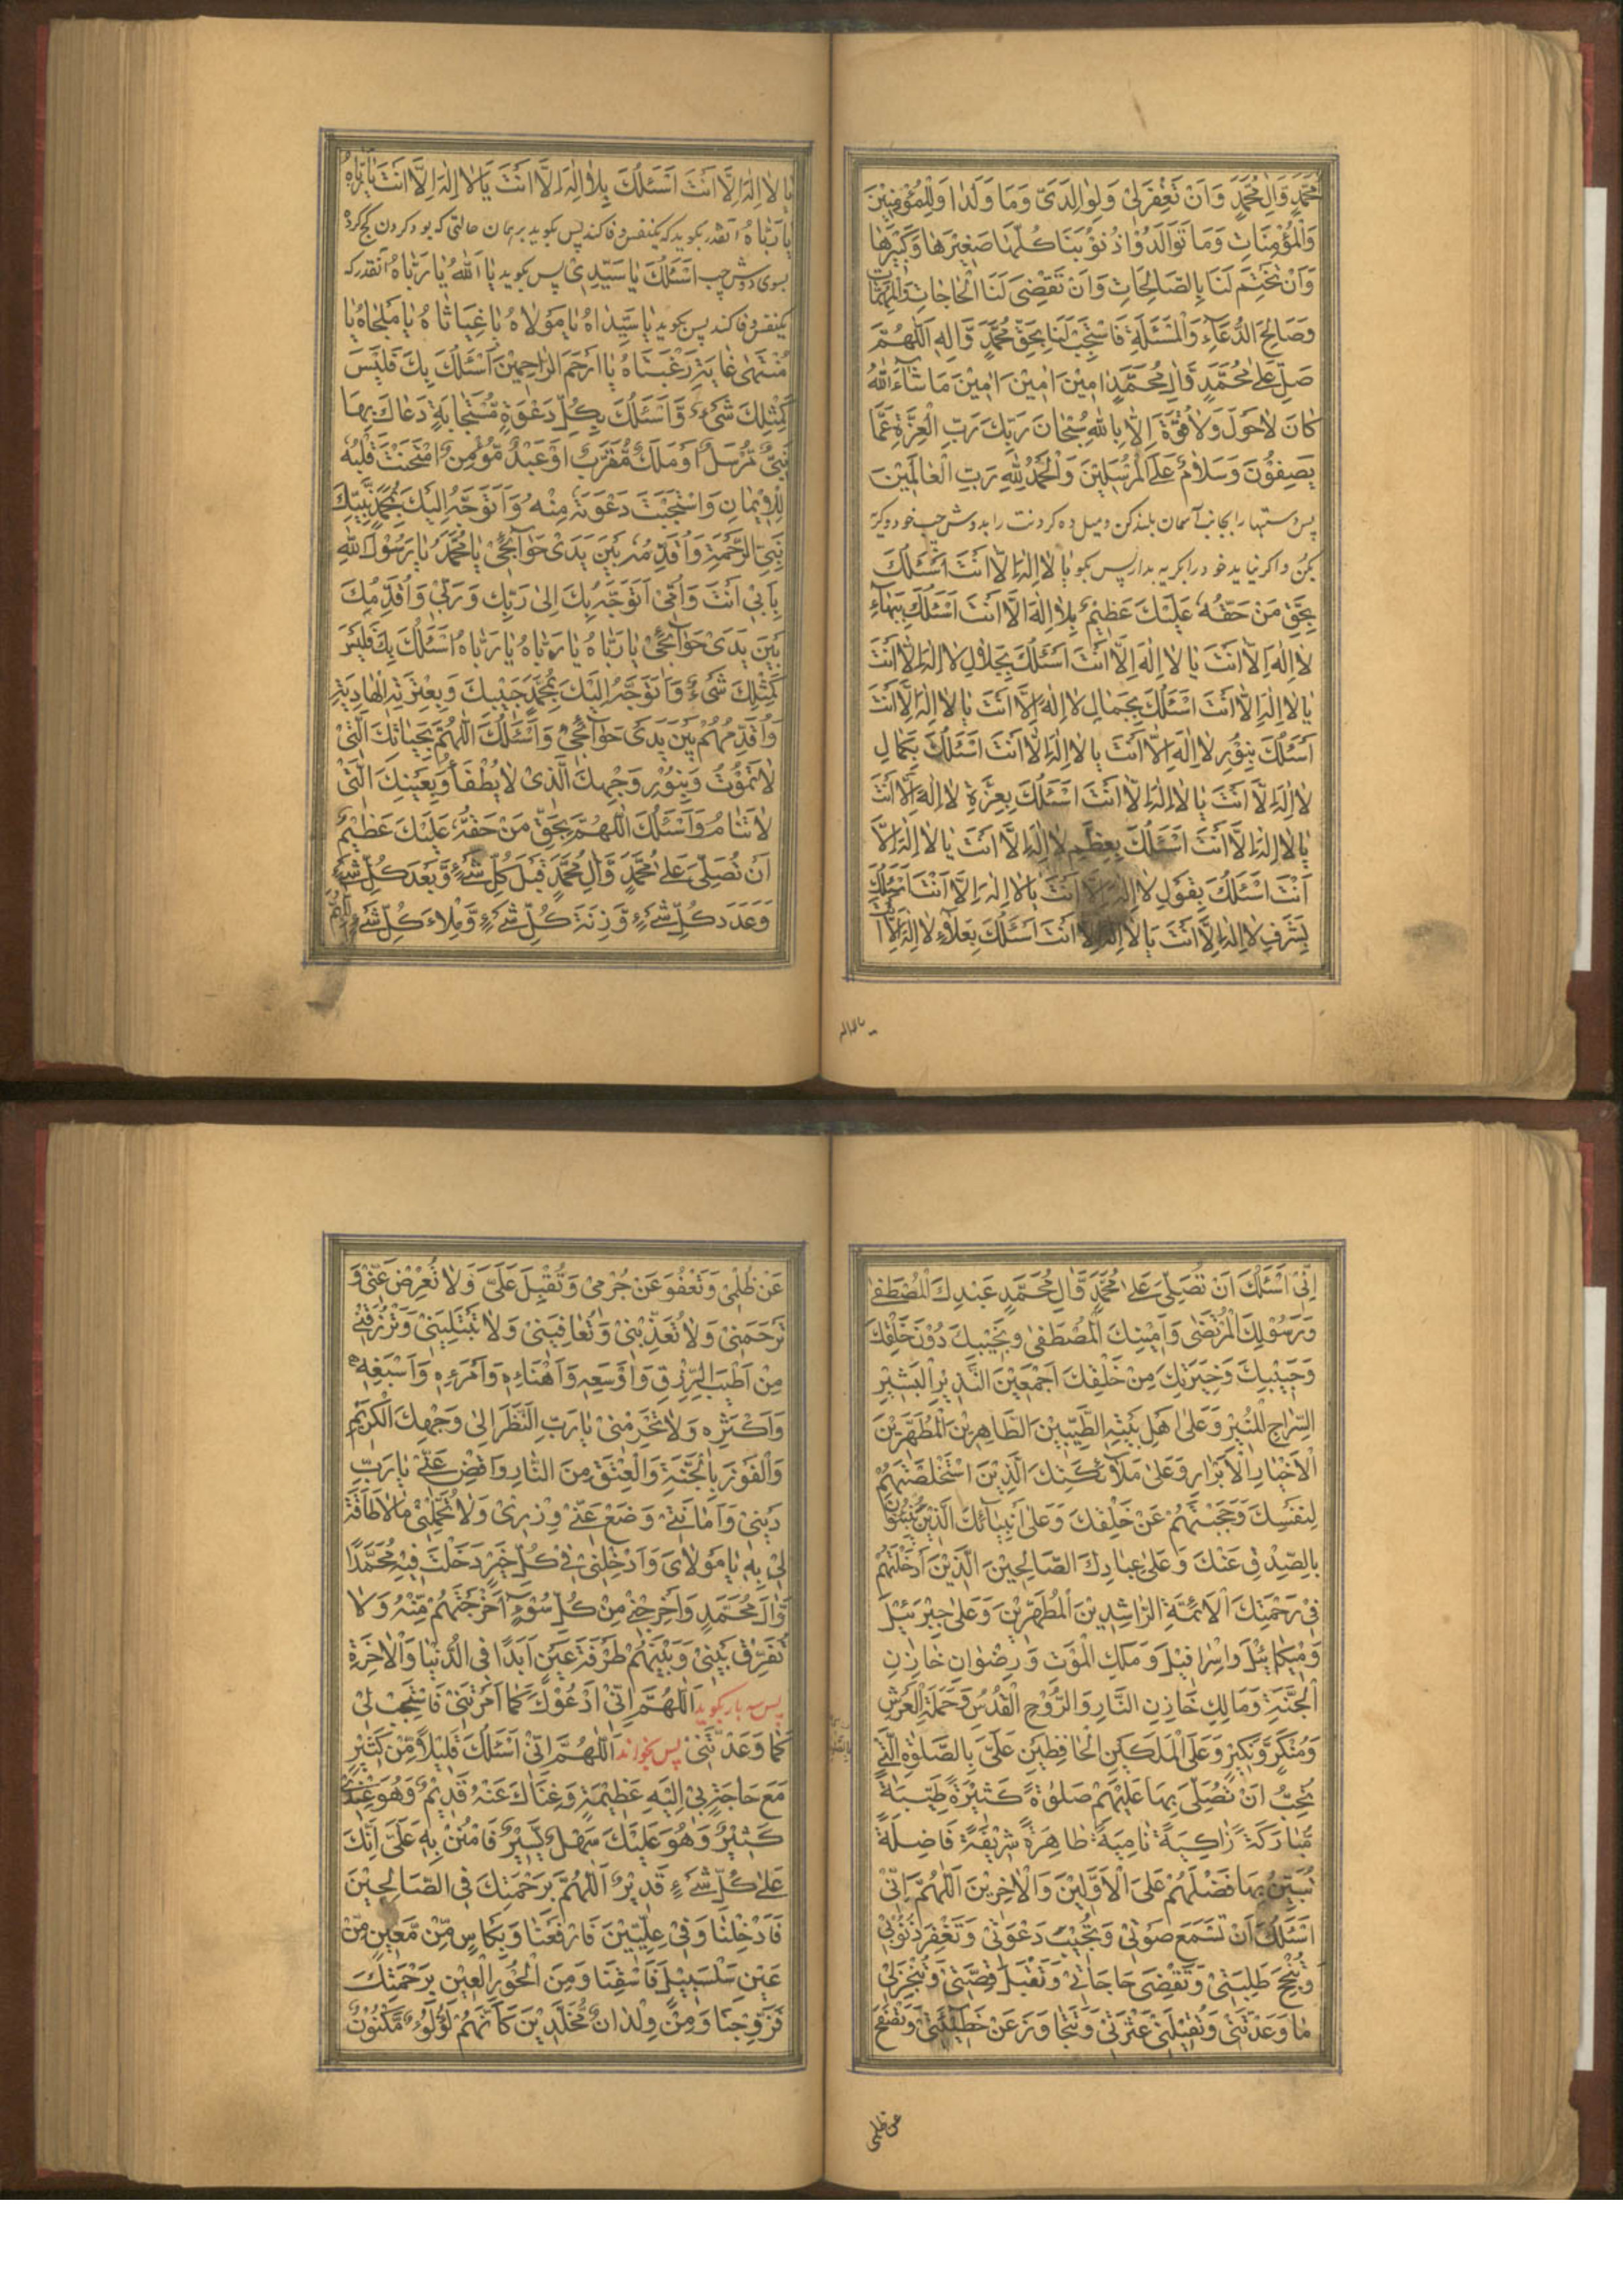 مُحَمَّدٍ وَالِ مُحَمَّدٍ وَاَنْ تَغْفِرَ لِيْ وَلِوَالِدَيَّ وَمَا وَلَدَا وَلِلْمُؤْمِنِيْنَ
وَالْمُؤْمِنَاتِ وَمَا تَوَالَدُوْا ذُنُوْبَنَا كُلَّهَا صَغِيْرَهَا وَكَبِيْرَهَا
وَاَنْ تَخْتِمَ لَنَا بِالصَّالِحَاتِ وَاَنْ تَقْضِىَ لَنَا الْحَاجَاتِ وَالْمُهِمَّاتِ
وَصَالِحَ الدُّعَآءِ وَالْمَسْئَلَةِ فَاسْتَجِبْ لَنَا بِحَقِّ مُحَمَّدٍ وَّالِهِ اَللّٰهُمَّ
صَلِّ عَلٰى مُحَمَّدٍ وَّالِ مُحَمَّدٍ اٰمِيْنَ اٰمِيْنَ اٰمِيْنَ مَا شَآءَ اللّٰهُ
كَانَ لَا حَوْلَ وَلَا قُوَّةَ اِلَّا بِاللّٰهِ سُبْحَانَ رَبِّكَ رَبِّ الْعِزَّةِ عَمَّا
يَصِفُوْنَ وَسَلَامٌ عَلَى الْمُرْسَلِيْنَ وَالْحَمْدُ لِلّٰهِ رَبِّ الْعَالَمِيْنَ
پس دستها را بجانب آسمان بلند کن و میل ده کردنت را بدوش چپ خود و کریه
بکن و اکر نیاید خود را بکریه بدار پس بکو يَا لَا اِلٰهَ اِلَّا اَنْتَ اَسْئَلُكَ
بِحَقِّ مَنْ حَقُّهُ عَلَيْكَ عَظِيْمٌ بِلَا اِلٰهَ اِلَّا اَنْتَ اَسْئَلُكَ بِبَهَآءِ
لَا اِلٰهَ اِلَّا اَنْتَ يَا لَا اِلٰهَ اِلَّا اَنْتَ اَسْئَلُكَ بِجَلَالِ لَا اِلٰهَ اِلَّا اَنْتَ
يَا لَا اِلٰهَ اِلَّا اَنْتَ اَسْئَلُكَ بِجَمَالِ لَا اِلٰهَ اِلَّا اَنْتَ يَا لَا اِلٰهَ اِلَّا اَنْتَ
اَسْئَلُكَ بِنُوْرِ لَا اِلٰهَ اِلَّا اَنْتَ يَا لَا اِلٰهَ اِلَّا اَنْتَ اَسْئَلُكَ بِكَمَالِ
لَا اِلٰهَ اِلَّا اَنْتَ يَا لَا اِلٰهَ اِلَّا اَنْتَ اَسْئَلُكَ بِعِزَّةِ لَا اِلٰهَ اِلَّا اَنْتَ
يَا لَا اِلٰهَ اِلَّا اَنْتَ اَسْئَلُكَ بِعِظَمِ لَا اِلٰهَ اِلَّا اَنْتَ يَا لَا اِلٰهَ اِلَّا
اَنْتَ اَسْئَلُكَ بِقَوْلِ لَا اِلٰهَ اِلَّا اَنْتَ يَا لَا اِلٰهَ اِلَّا اَنْتَ اَسْئَلُكَ
بِشَرَفِ لَا اِلٰهَ اِلَّا اَنْتَ يَا لَا اِلٰهَ اِلَّا اَنْتَ اَسْئَلُكَ بِعَلَاءِ لَا اِلٰهَ اِلَّا اَنْتَ
يَا لَا اِلٰهَ اِلَّا اَنْتَ اَسْئَلُكَ بِلَا اِلٰهَ اِلَّا اَنْتَ يَا لَا اِلٰهَ اِلَّا اَنْتَ يَا رَبَّاهُ
يَا رَبَّاهُ آنقدر بکوید که یکنفس وفا کند پس بکوید بر همان حالتی که بود کردن کج کرده
بسوی دوش چپ اَسْئَلُكَ يَا سَيِّدِيْ پس بکوید يَا اَللّٰهُ يَا رَبَّاهُ آنقدر که
یکنفس وفا کند پس بکوید يَا سَيِّدَاهُ يَا مَوْلَاهُ يَا غِيَاثَاهُ يَا مَلْجَاهُ يَا
مُنْتَهٰى غَايَةِ رَغْبَتَاهُ يَا اَرْحَمَ الرَّاحِمِيْنَ اَسْئَلُكَ بِكَ فَلَيْسَ
كَمِثْلِكَ شَيْءٌ وَّاَسْئَلُكَ بِكُلِّ دَعْوَةٍ مُّسْتَجَابَةٍ دَعَاكَ بِهَا
نَبِيٌّ مُّرْسَلٌ اَوْ مَلَكٌ مُّقَرَّبٌ اَوْ عَبْدٌ مُّؤْمِنٌ امْتَحَنْتَ قَلْبَهُ
لِلْاِيْمَانِ وَاسْتَجَبْتَ دَعْوَتَهُ مِنْهُ وَاَتَوَجَّهُ اِلَيْكَ بِمُحَمَّدٍ نَّبِيِّكَ
نَبِيِّ الرَّحْمَةِ وَاُقَدِّمُهُ بَيْنَ يَدَيْ حَوَآئِجِيْ يَا مُحَمَّدُ يَا رَسُوْلَ اللّٰهِ
بِاَبِيْ اَنْتَ وَاُمِّيْ اَتَوَجَّهُ بِكَ اِلٰى رَبِّكَ وَرَبِّيْ وَاُقَدِّمُكَ
بَيْنَ يَدَيْ حَوَآئِجِيْ يَا رَبَّاهُ يَا رَبَّاهُ يَا رَبَّاهُ اَسْئَلُكَ بِكَ فَلَيْسَ
كَمِثْلِكَ شَيْءٌ وَّاَتَوَجَّهُ اِلَيْكَ بِمُحَمَّدٍ حَبِيْبِكَ وَبِعِتْرَتِهِ الْهَادِيَةِ
وَاُقَدِّمُهُمْ بَيْنَ يَدَيْ حَوَآئِجِيْ وَاَسْئَلُكَ اللّٰهُمَّ بِحَيَاتِكَ الَّتِيْ
لَا تَمُوْتُ وَبِنُوْرِ وَجْهِكَ الَّذِيْ لَا يُطْفَأُ وَبِعَيْنِكَ الَّتِيْ
لَا تَنَامُ وَاَسْئَلُكَ اللّٰهُمَّ بِحَقِّ مَنْ حَقُّهُ عَلَيْكَ عَظِيْمٌ
اَنْ تُصَلِّيَ عَلٰى مُحَمَّدٍ وَّالِ مُحَمَّدٍ قَبْلَ كُلِّ شَيْءٍ وَّبَعْدَ كُلِّ شَيْءٍ
وَعَدَدَ كُلِّ شَيْءٍ وَّزِنَةَ كُلِّ شَيْءٍ وَّمِلْاءَ كُلِّ شَيْءٍ اَللّٰهُمَّ
اِنِّيْ اَسْئَلُكَ اَنْ تُصَلِّيَ عَلٰى مُحَمَّدٍ وَّالِ مُحَمَّدٍ عَبْدِكَ الْمُصْطَفٰى
وَرَسُوْلِكَ الْمُرْتَضٰى وَاَمِيْنِكَ الْمُصْطَفٰى وَنَجِيْبِكَ دُوْنَ خَلْقِكَ
وَحَبِيْبِكَ وَخِيَرَتِكَ مِنْ خَلْقِكَ اَجْمَعِيْنَ النَّذِيْرِ الْبَشِيْرِ
السِّرَاجِ الْمُنِيْرِ وَعَلٰى اَهْلِ بَيْتِهِ الطَّيِّبِيْنَ الطَّاهِرِيْنَ الْمُطَهَّرِيْنَ
الْاَخْيَارِ الْاَبْرَارِ وَعَلٰى مَلَآئِكَتِكَ الَّذِيْنَ اسْتَخْلَصْتَهُمْ
لِنَفْسِكَ وَحَجَبْتَهُمْ عَنْ خَلْقِكَ وَعَلٰى اَنْبِيَآئِكَ الَّذِيْنَ يُنْبِئُوْنَ
بِالصِّدْقِ عَنْكَ وَعَلٰى عِبَادِكَ الصَّالِحِيْنَ الَّذِيْنَ اَدْخَلْتَهُمْ
فِيْ رَحْمَتِكَ الْاَئِمَّةِ الرَّاشِدِيْنَ الْمُطَهَّرِيْنَ وَعَلٰى جِبْرَئِيْلَ
وَمِيْكَائِيْلَ وَاِسْرَافِيْلَ وَمَلَكِ الْمَوْتِ وَرِضْوَانٍ خَازِنِ
الْجَنَّةِ وَمَالِكٍ خَازِنِ النَّارِ وَالرُّوْحِ الْقُدُسِ وَحَمَلَةِ الْعَرْشِ
وَمُنْكَرٍ وَّنَكِيْرٍ وَّعَلَى الْمَلَكَيْنِ الْحَافِظَيْنِ عَلَيَّ بِالصَّلٰوةِ الَّتِيْ
تُحِبُّ اَنْ تُصَلِّيَ بِهَا عَلَيْهِمْ صَلٰوةً كَثِيْرَةً طَيِّبَةً
مُّبَارَكَةً زَاكِيَةً نَامِيَةً طَاهِرَةً شَرِيْفَةً فَاضِلَةً
تُبَيِّنُ بِهَا فَضْلَهُمْ عَلَى الْاَوَّلِيْنَ وَالْاٰخِرِيْنَ اَللّٰهُمَّ اِنِّيْ
اَسْئَلُكَ اَنْ تَسْمَعَ صَوْتِيْ وَتُجِيْبَ دَعْوَتِيْ وَتَغْفِرَ ذُنُوْبِيْ
وَتُنْجِحَ طَلِبَتِيْ وَتَقْضِيَ حَاجَاتِيْ وَتَقْبَلَ قِصَّتِيْ وَتُنْجِزَ لِيْ
مَا وَعَدْتَنِيْ وَتُقِيْلَنِيْ عَثْرَتِيْ وَتَتَجَاوَزَ عَنْ خَطِيْئَتِيْ وَتَصْفَحَ
عن ظلمی
عَنْ ظُلْمِيْ وَتَعْفُوَ عَنْ جُرْمِيْ وَتُقْبِلَ عَلَيَّ وَلَا تُعْرِضْ عَنِّيْ وَ
تَرْحَمَنِيْ وَلَا تُعَذِّبْنِيْ وَتُعَافِيَنِيْ وَلَا تَبْتَلِيَنِيْ وَتَرْزُقَنِيْ
مِنْ اَطْيَبِ الرِّزْقِ وَاَوْسَعِهِ وَاَهْنَاءِهِ وَاَمْرَءِهِ وَاَسْبَغِهِ
وَاَكْثَرِهِ وَلَا تَحْرِمْنِيْ يَا رَبِّ النَّظَرَ اِلٰى وَجْهِكَ الْكَرِيْمِ
وَالْفَوْزَ بِالْجَنَّةِ وَالْعِتْقَ مِنَ النَّارِ وَاقْضِ عَنِّيْ يَا رَبِّ
دَيْنِيْ وَاَمَانَتِيْ وَضَعْ عَنِّيْ وِزْرِيْ وَلَا تُحَمِّلْنِيْ مَا لَا طَاقَةَ
لِيْ بِهِ يَا مَوْلَايَ وَاَدْخِلْنِيْ فِيْ كُلِّ خَيْرٍ دَخَلْتَ فِيْهِ مُحَمَّدًا
وَّالَ مُحَمَّدٍ وَاَخْرِجْنِيْ مِنْ كُلِّ سُوْءٍ اَخْرَجْتَهُمْ مِّنْهُ وَلَا
تُفَرِّقْ بَيْنِيْ وَبَيْنَهُمْ طَرْفَةَ عَيْنٍ اَبَدًا فِي الدُّنْيَا وَالْاٰخِرَةِ
پس سه بار بکوید اَللّٰهُمَّ اِنِّيْ اَدْعُوْكَ كَمَا اَمَرْتَنِيْ فَاسْتَجِبْ لِيْ
كَمَا وَعَدْتَّنِيْ پس بخواند اَللّٰهُمَّ اِنِّيْ اَسْئَلُكَ قَلِيْلًا مِّنْ كَثِيْرٍ
مَعَ حَاجَةٍ بِيْ اِلَيْهِ عَظِيْمَةٍ وَغِنَاكَ عَنْهُ قَدِيْمٌ وَهُوَ عِنْدِيْ
كَثِيْرٌ وَهُوَ عَلَيْكَ سَهْلٌ يَّسِيْرٌ فَامْنُنْ بِهِ عَلَيَّ اِنَّكَ
عَلٰى كُلِّ شَيْءٍ قَدِيْرٌ اَللّٰهُمَّ بِرَحْمَتِكَ فِي الصَّالِحِيْنَ
فَاَدْخِلْنَا وَفِيْ عِلِّيِّيْنَ فَارْفَعْنَا وَبِكَاْسٍ مِّنْ مَّعِيْنٍ مِّنْ
عَيْنٍ سَلْسَبِيْلٍ فَاسْقِنَا وَمِنَ الْحُوْرِ الْعِيْنِ بِرَحْمَتِكَ
فَزَوِّجْنَا وَمِنْ وِلْدَانٍ مُّخَلَّدِيْنَ كَاَنَّهُمْ لُؤْلُؤٌ مَّكْنُوْنٌ